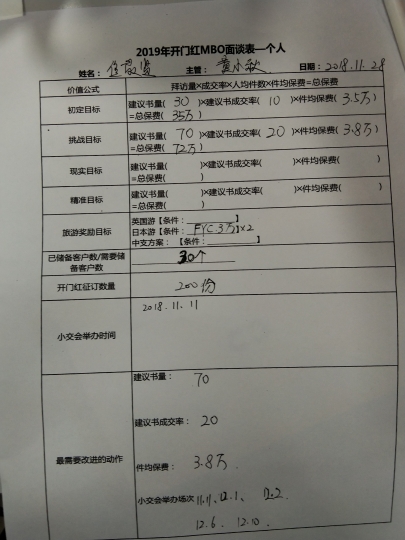 2019年开门红MBO面谈表—个人
姓名： 主管：黄小秋 日期：2018.11.28
价值公式 拜访量×成交率×人均件数×件均保费=总保费
初定目标 建议书量( 30 )×建议书成交率( 10 )×件均保费( 3.5万 )
=总保费( 35万 )
挑战目标 建议书量( 70 )×建议书成交率( 20 )×件均保费( 3.8万 )
=总保费( 72万 )
现实目标 建议书量( )×建议书成交率( )×件均保费( )
=总保费( )
精准目标 建议书量( )×建议书成交率( )×件均保费( )
=总保费( )
旅游奖励目标 英国游【条件： 】
日本游【条件： FYC 3万 】×2
中支方案： 【条件： 】
已储备客户数/需要储
备客户数 30个
开门红征订数量 200份
小交会举办时间 2018.11.11
最需要改进的动作 建议书量： 70
建议书成交率： 20
件均保费： 3.8万.
小交会举办场次 11.11、12.1、 12.2.
12.6、 12.10.